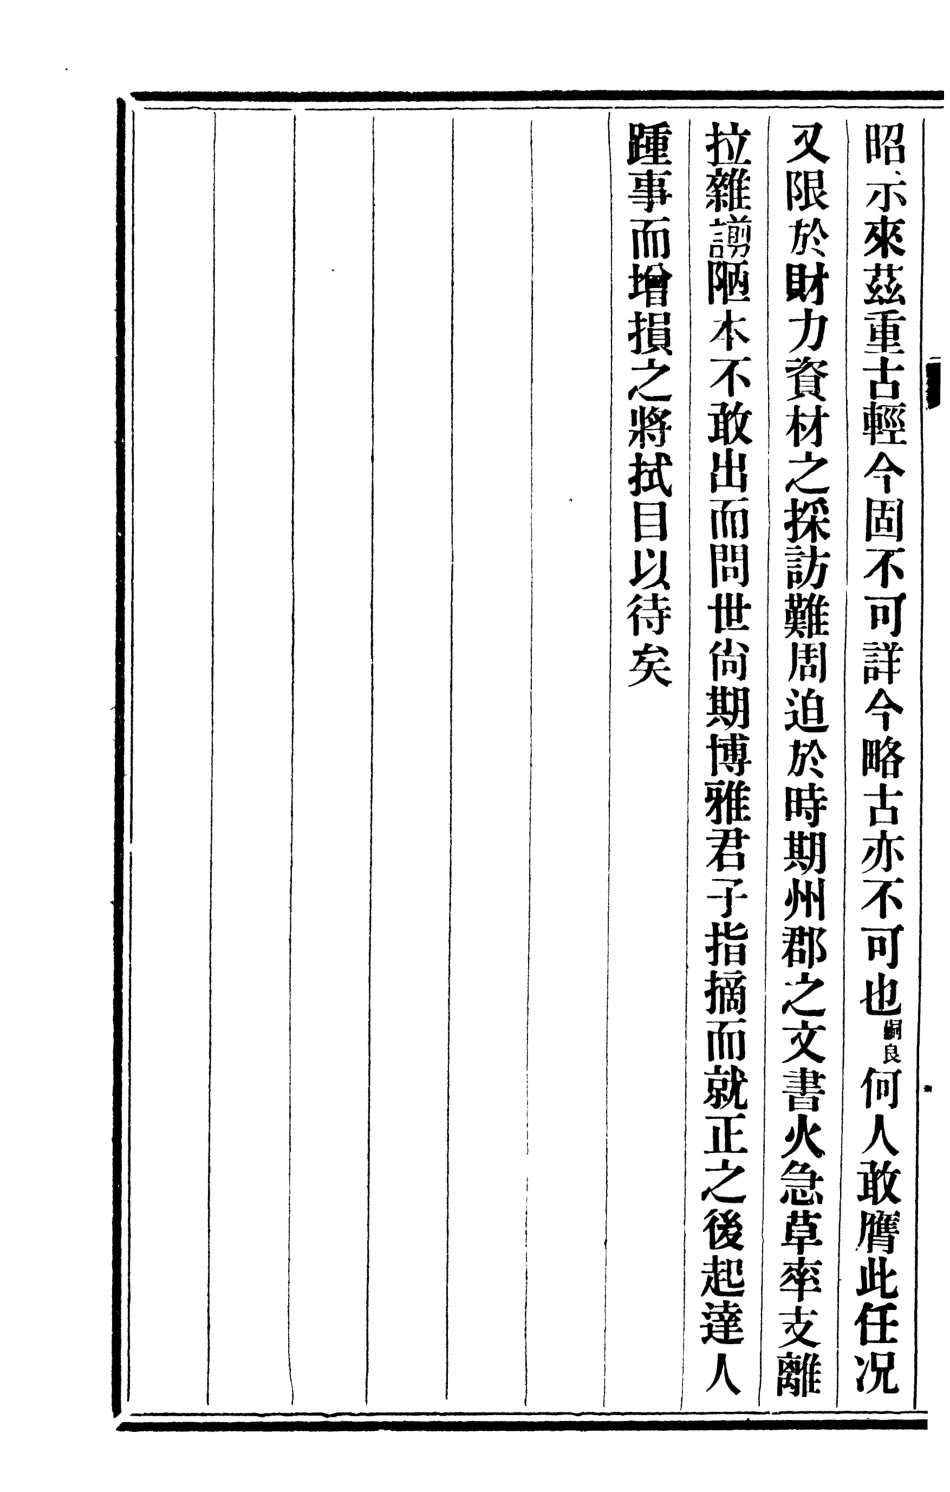 昭示來茲重古輕今固不可詳今略古亦不可也嗣良何人敢膺此任况
又限於財力資材之採訪難周迫於時期州郡之文書火急草率支離
拉雜謭陋本不敢出而問世尙期博雅君子指摘而就正之後起達人
踵事而增損之將拭目以待矣